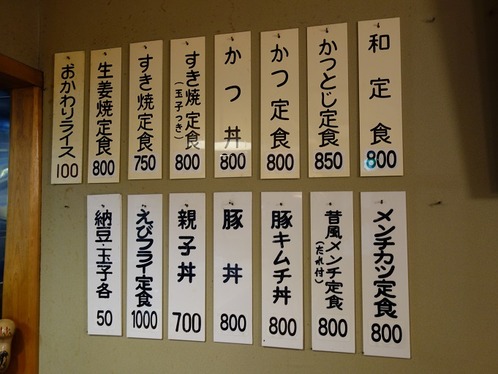 和定食
800
かつとじ定食
850
かつ定食
800
かつ丼
800
すき焼定食
(玉子つき)
800
すき焼定食
750
生姜焼定食
800
おかわりライス
100
メンチカツ定食
800
昔風メンチ定食
(たれ付)
800
豚キムチ丼
800
豚丼
800
親子丼
700
えびフライ定食
1000
納豆・玉子各
50